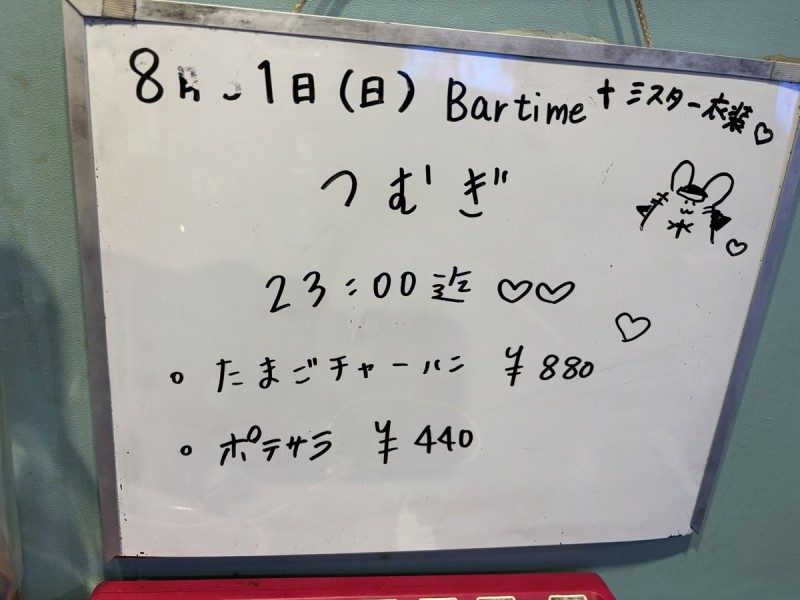 8月31日(日) Bartime +ミスター衣装♡
つむぎ
23:00迄 ♡♡
♡
• たまごチャーハン ¥880
• ポテサラ ¥440